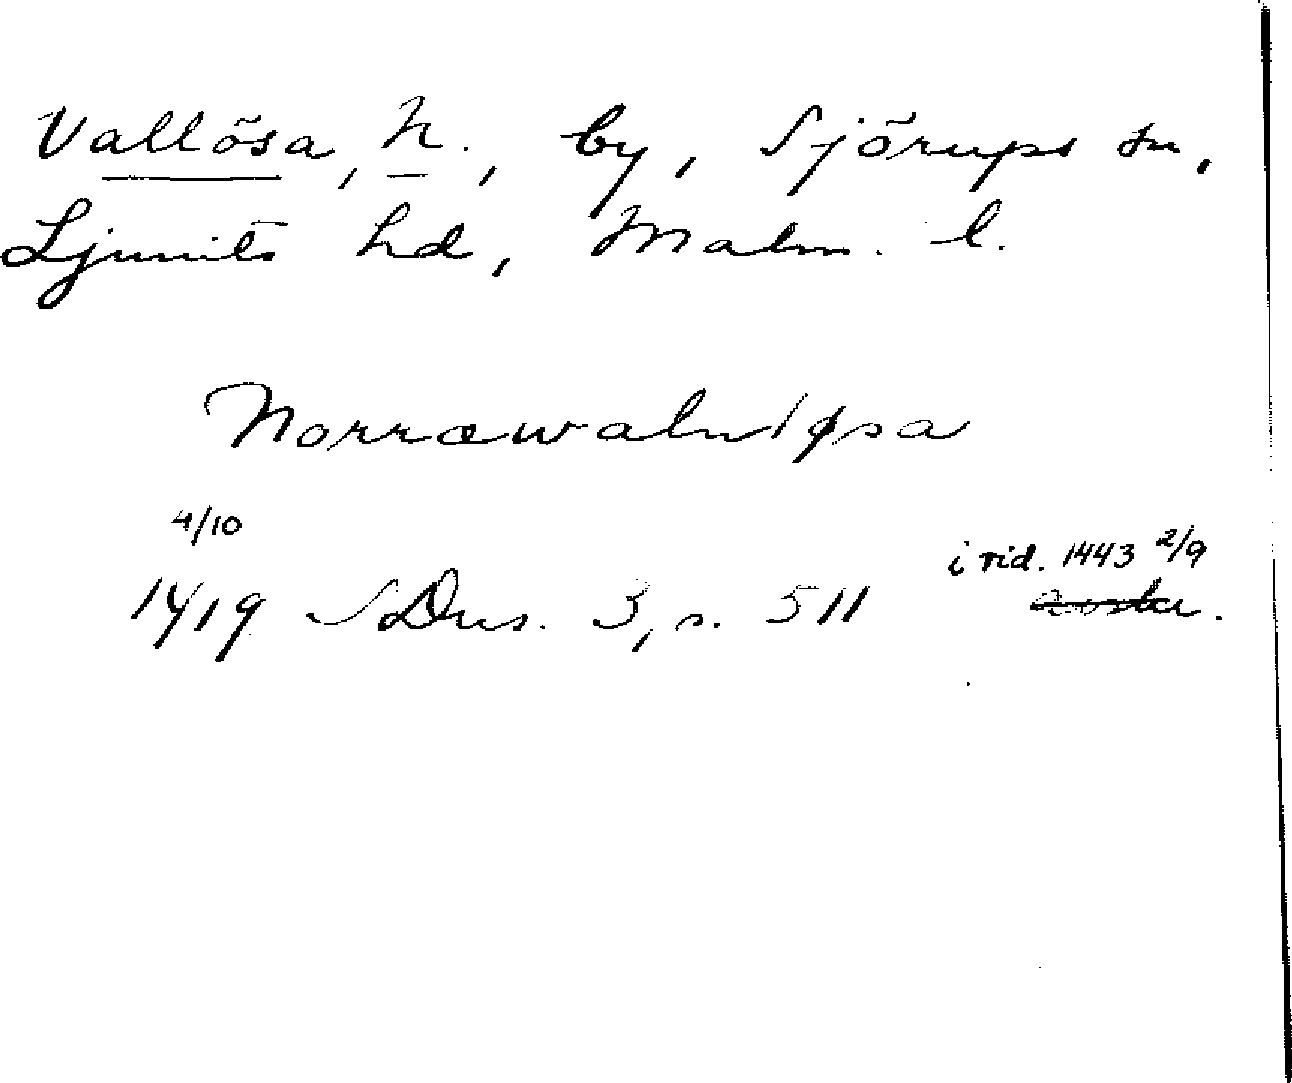 Vallösa, N., by, Sjörups sn,
Ljunits hd, Malm. l.
Norræwalnløsa
4/10
i vid. 1443 2/9
1419 SDns. 3, s. 511